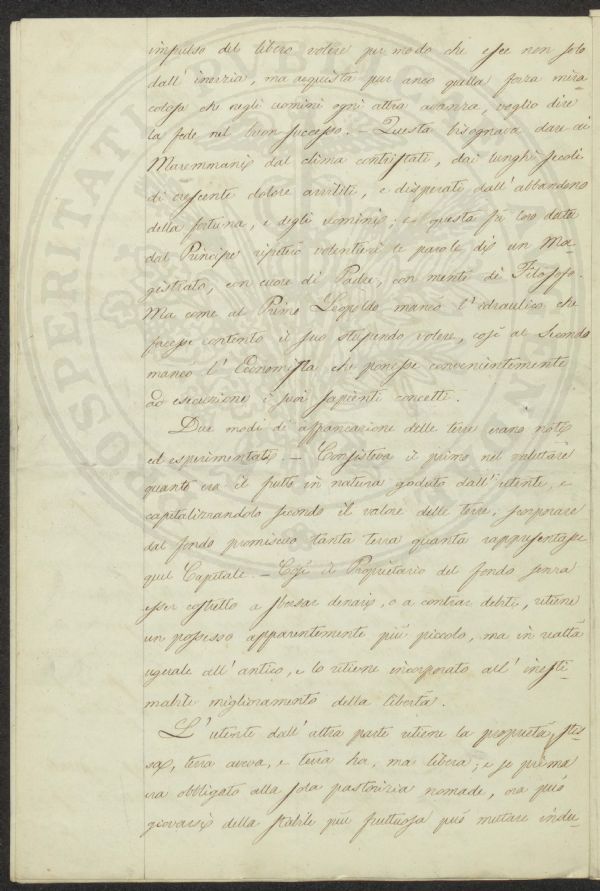 impulso del libero volere per modo che esce non solo
dall' inerzia, ma acquista pur anco quella forza mira-
colosa che negli uomini ogni altra avanza, voglio dire
la fede nel buon successo. – Questa bisognava dare ai
Maremmani dal clima contristati, dai lunghi secoli
di crescente dolore avviliti, e disperati dall' abbandono
della fortuna, e degli uomini; e questa fu loro data
dal Principe ripeterò volentieri le parole di un Ma-
gistrato, con cuore di Padre, con mente di Filosofo.
Ma come al Primo Leopoldo mancò l' idraulico che
facesse contento il suo stupendo volere, così al Secondo
mancò l' Economista che ponesse convenientemente
ad esecuzione i suoi sapienti concetti.
Due modi di affrancazione delle terre erano noti
ed esperimentati. – Consisteva il primo nel valutare
quanto era il frutto in natura goduto dall' utente, e
capitalizzandolo secondo il valore delle terre, scorporare
dal fondo promiscuo tanta terra quanta rappresentasse
quel Capitale. – Così il Proprietario del fondo senza
esser costretto a sborsar denari, o a contrar debiti, ritiene
un possesso apparentemente più piccolo, ma in realtà
uguale all' antico, e lo ritiene incorporato all' inesti-
mabile miglioramento della libertà.
L' utente dall' altra parte ritiene la proprietà stes-
sa, terra aveva, e terra ha, ma libera; e se prima
era obbligato alla sola pastorizia nomade, ora può
giovarsi della stabile più fruttuosa può mutare indu-
PROSPERITATI PUBLICAE